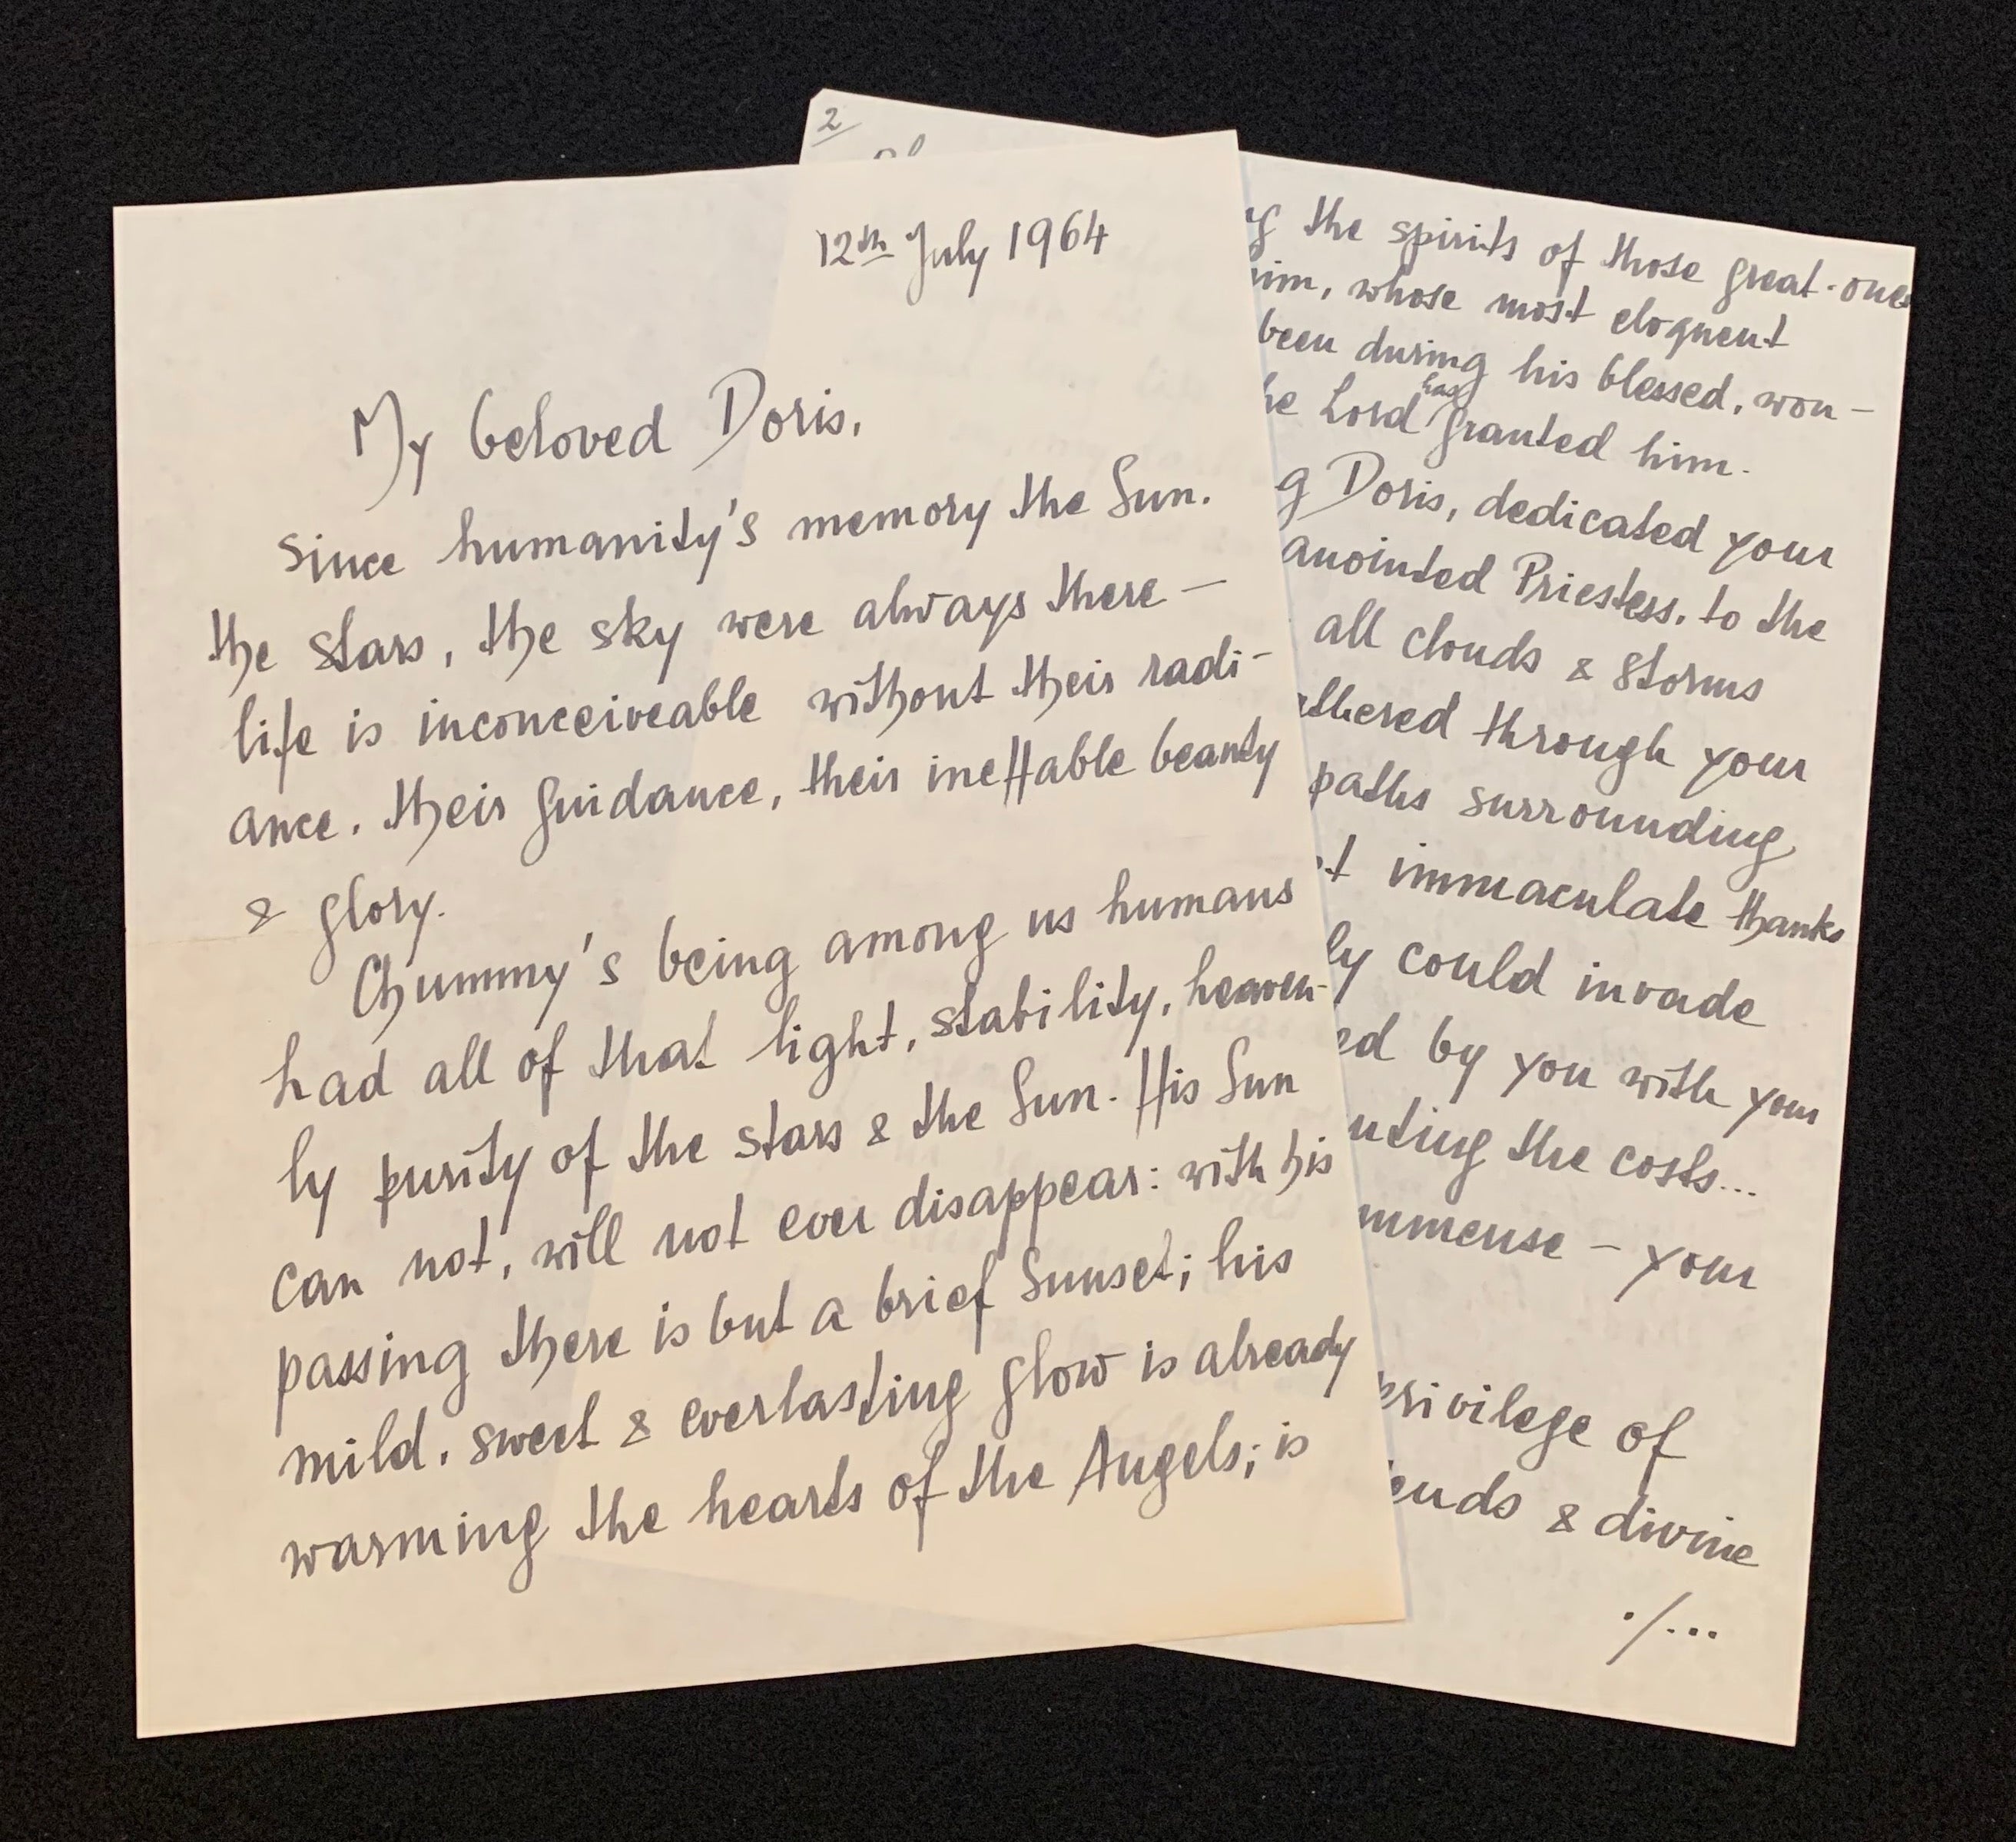 12th July 1964
My beloved Doris,
since humanity's memory the Sun.
the stars, the sky were always there —
life is inconceiveable without their radi-
ance. their guidance, their ineffable beauty
& glory.
Chummy's being among us humans
had all of that light, stability, heaven-
ly purity of the stars & the Sun. His Sun
can not, will not ever disappear: with his
passing there is but a brief Sunset; his
mild, sweet & everlasting glow is already
warming the hearts of the Angels; is
2
the spirits of those great-ones
him, whose most eloquent
been during his blessed, won-
he Lord has granted him.
g Doris, dedicated your
anointed Priestess, to the
all clouds & storms
athered through your
paths surrounding
t immaculate thanks
ly could invade
ed by you with your
nting the costs...
mmense — your
privilege of
ends & divine
./...